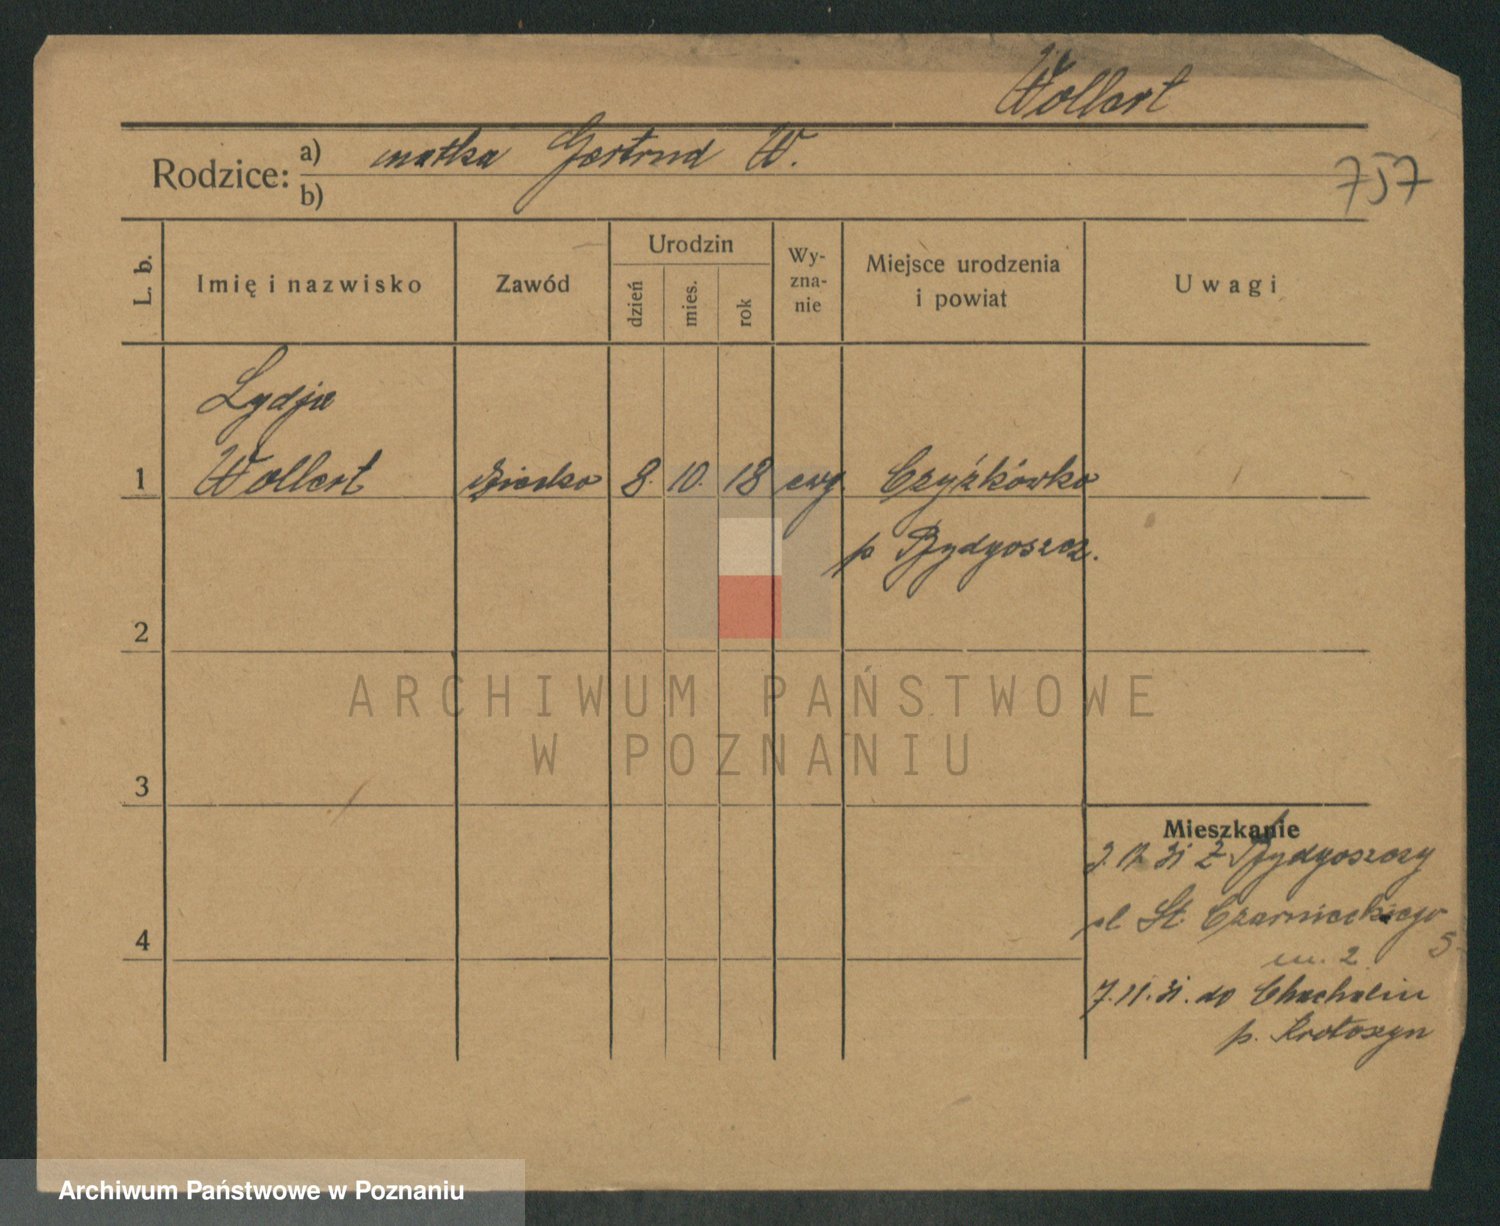 Wollert
Rodzice: a) matka Gertrud W.
b)
757
L. b.
Imię i nazwisko
Zawód
Urodzin
dzień
mies.
rok
Wy-
zna-
nie
Miejsce urodzenia
i powiat
Uwagi
Lydja
1 Wollert dziecko 8. 10. 18 ewg. Czyżkówko
p Bydgoszcz.
2
ARCHIWUM PAŃSTWOWE
W POZNANIU
3
Mieszkanie
31 z Bydgoszczy
St. Czarnieckiego
5
4
m. 2
7.11.31. do Chachalni
p. Krotoszyn
Archiwum Państwowe w Poznaniu